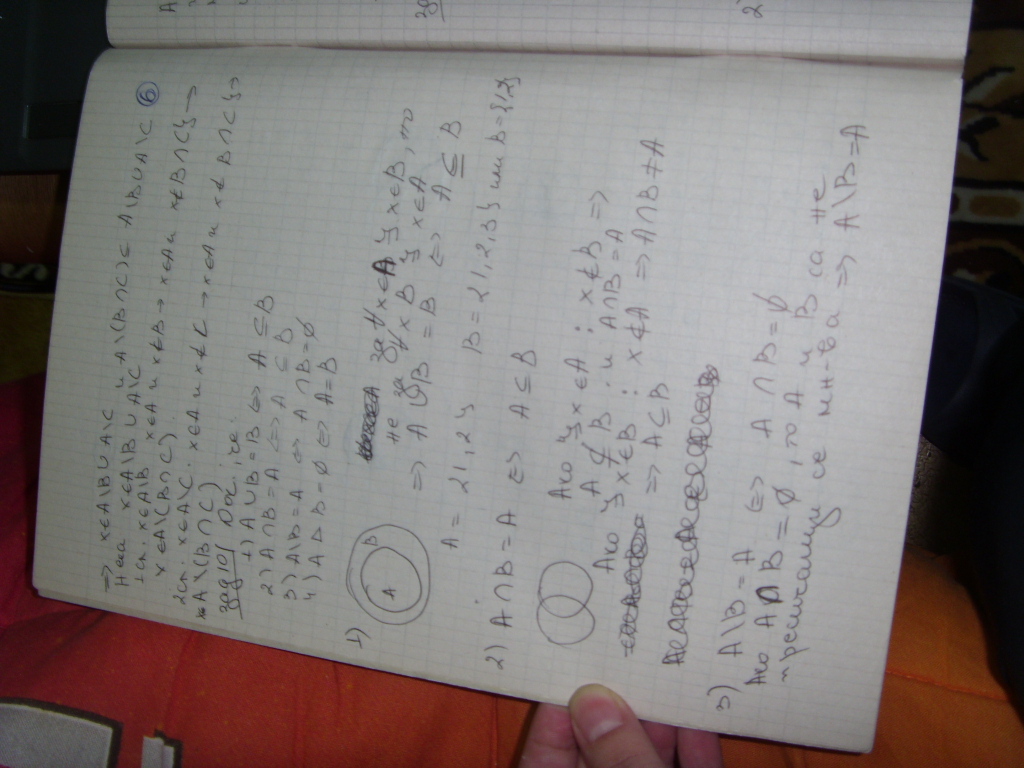 ⑥
=> x∈A\B∪A\C
Нека x∈A\B∪A\C и A\(B∩C)⊆ A\B∪A\C
1сл. x∈A\B x∈A и x∉B → x∈A и x∉B∩C} →
x∈A\(B∩C)
2сл. x∈A\C. x∈A и x∉C → x∈A и x∉B∩C} →
x∈A\(B∩C)
зад 10/ Док, че:
1) A∪B=B <=> A⊆B
2) A∩B=A <=> A⊆B
3) A\B=A <=> A∩B=∅
4) A△B=∅ <=> A=B
1) A B за ∀x∈A ∃ x∈B, то
не за ∀x B ∃ x∈A
=> A∪B=B <=> A⊆B
A= {1,2} B={1,2,3} или B={1,2}
2) A∩B=A <=> A⊆B
Ако ∃x∈A : x∉B =>
A⊄B и A∩B=A
Ако ∃x∈B : x∉A => A∩B≠A
=> A⊆B
3) A\B=A <=> A∩B=∅
Ако A∩B=∅, то A и B са не
пресичащи се мн-ва => A\B=A